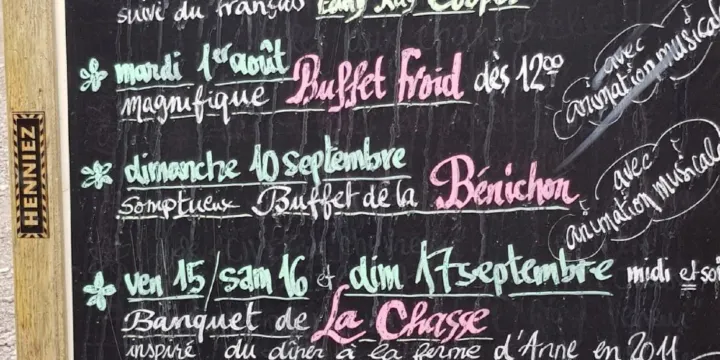 suivi du français Eddy Ray Cooper
mardi 1er août
magnifique Buffet froid dès 12°°
avec
animation musicale
dimanche 10 septembre
somptueux Buffet de la Bénichon
avec
animation musicale
ven 15/sam 16 et dim 17 septembre midi et soi
Banquet de La Chasse
inspiré du dîner à la ferme d'Anne en 2011
HENNIEZ